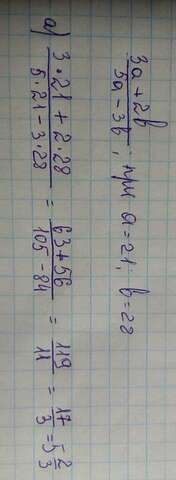 (3a + 2b)/(5a - 3b); при a=21; b=28
а) (3·21 + 2·28)/(5·21 - 3·28) = (63+56)/(105-84) = 119/11 = 17/3 = 5 2/3